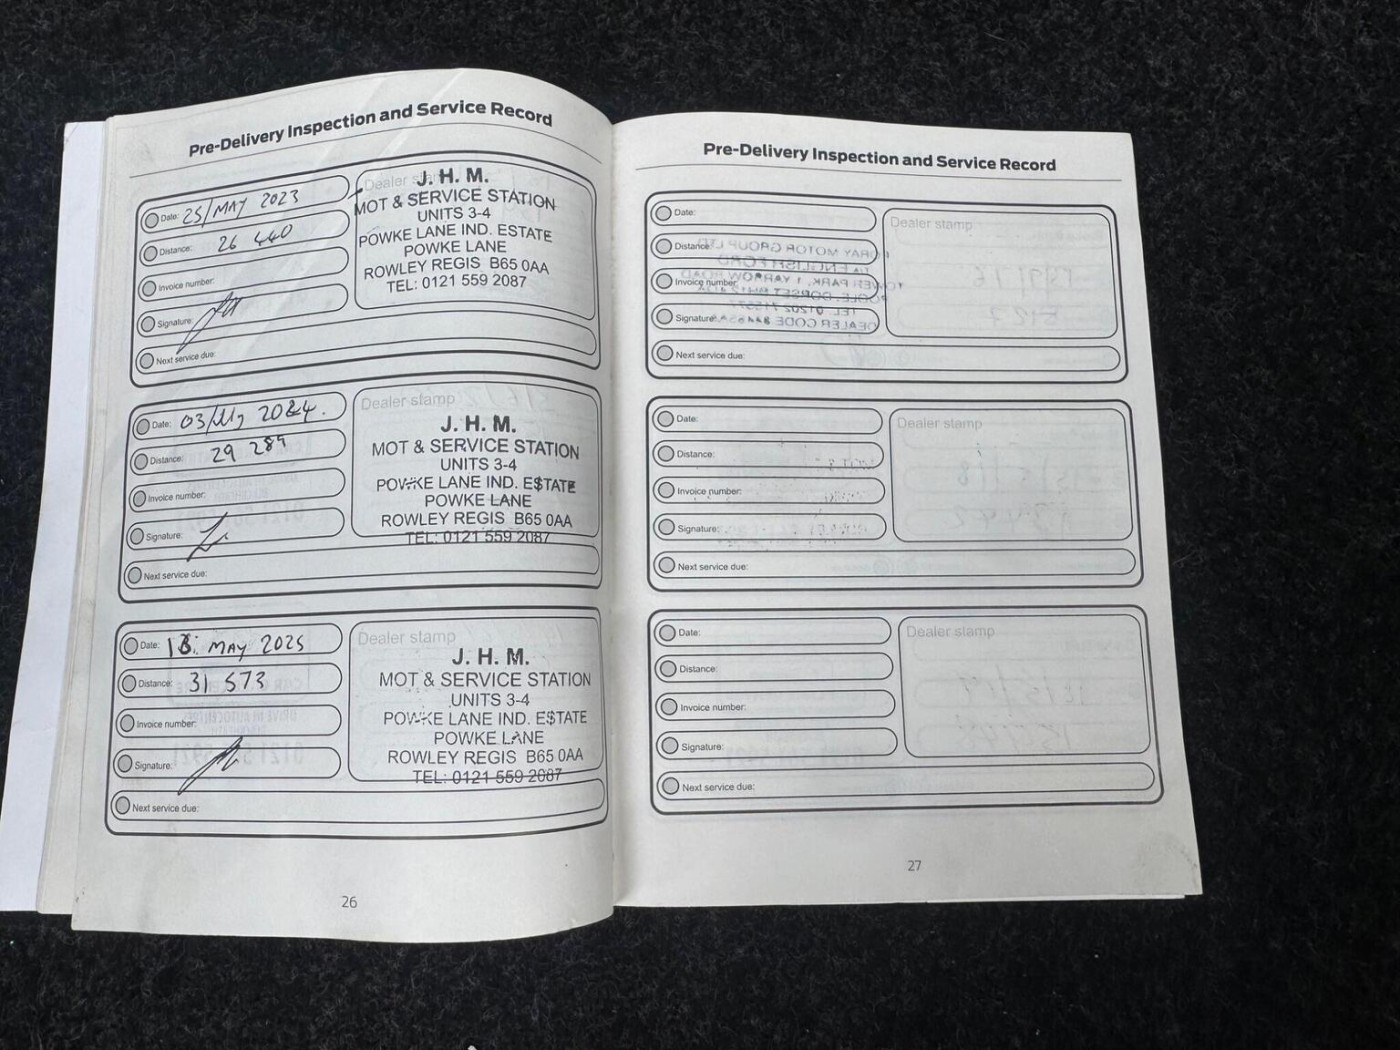 Pre-Delivery Inspection and Service Record
Date: 25/MAY 2023
Distance: 26 440
Invoice number:
Signature:
Next service due:
Dealer stamp
J. H. M.
MOT & SERVICE STATION
UNITS 3-4
POWKE LANE IND. ESTATE
POWKE LANE
ROWLEY REGIS B65 0AA
TEL: 0121 559 2087
Date: 03/ 2024.
Distance: 29 289
Invoice number:
Signature:
Next service due:
Dealer stamp
J. H. M.
MOT & SERVICE STATION
UNITS 3-4
POWKE LANE IND. ESTATE
POWKE LANE
ROWLEY REGIS B65 0AA
TEL: 0121 559 2087
Date: 13. MAY 2025
Distance: 31 573
Invoice number:
Signature:
Next service due:
Dealer stamp
J. H. M.
MOT & SERVICE STATION
UNITS 3-4
POWKE LANE IND. ESTATE
POWKE LANE
ROWLEY REGIS B65 0AA
TEL: 0121 559 2087
26
Pre-Delivery Inspection and Service Record
Date:
Distance:
Invoice number:
Signature:
Next service due:
Dealer stamp
Date:
Distance:
Invoice number:
Signature:
Next service due:
Dealer stamp
Date:
Distance:
Invoice number:
Signature:
Next service due:
Dealer stamp
27